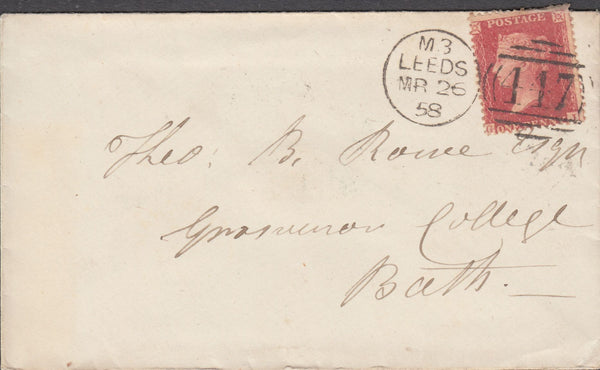 M.3
LEEDS
MR 26
58
POSTAGE
447
Theo: B. Rowe Esqr
Grosvenor College
Bath.